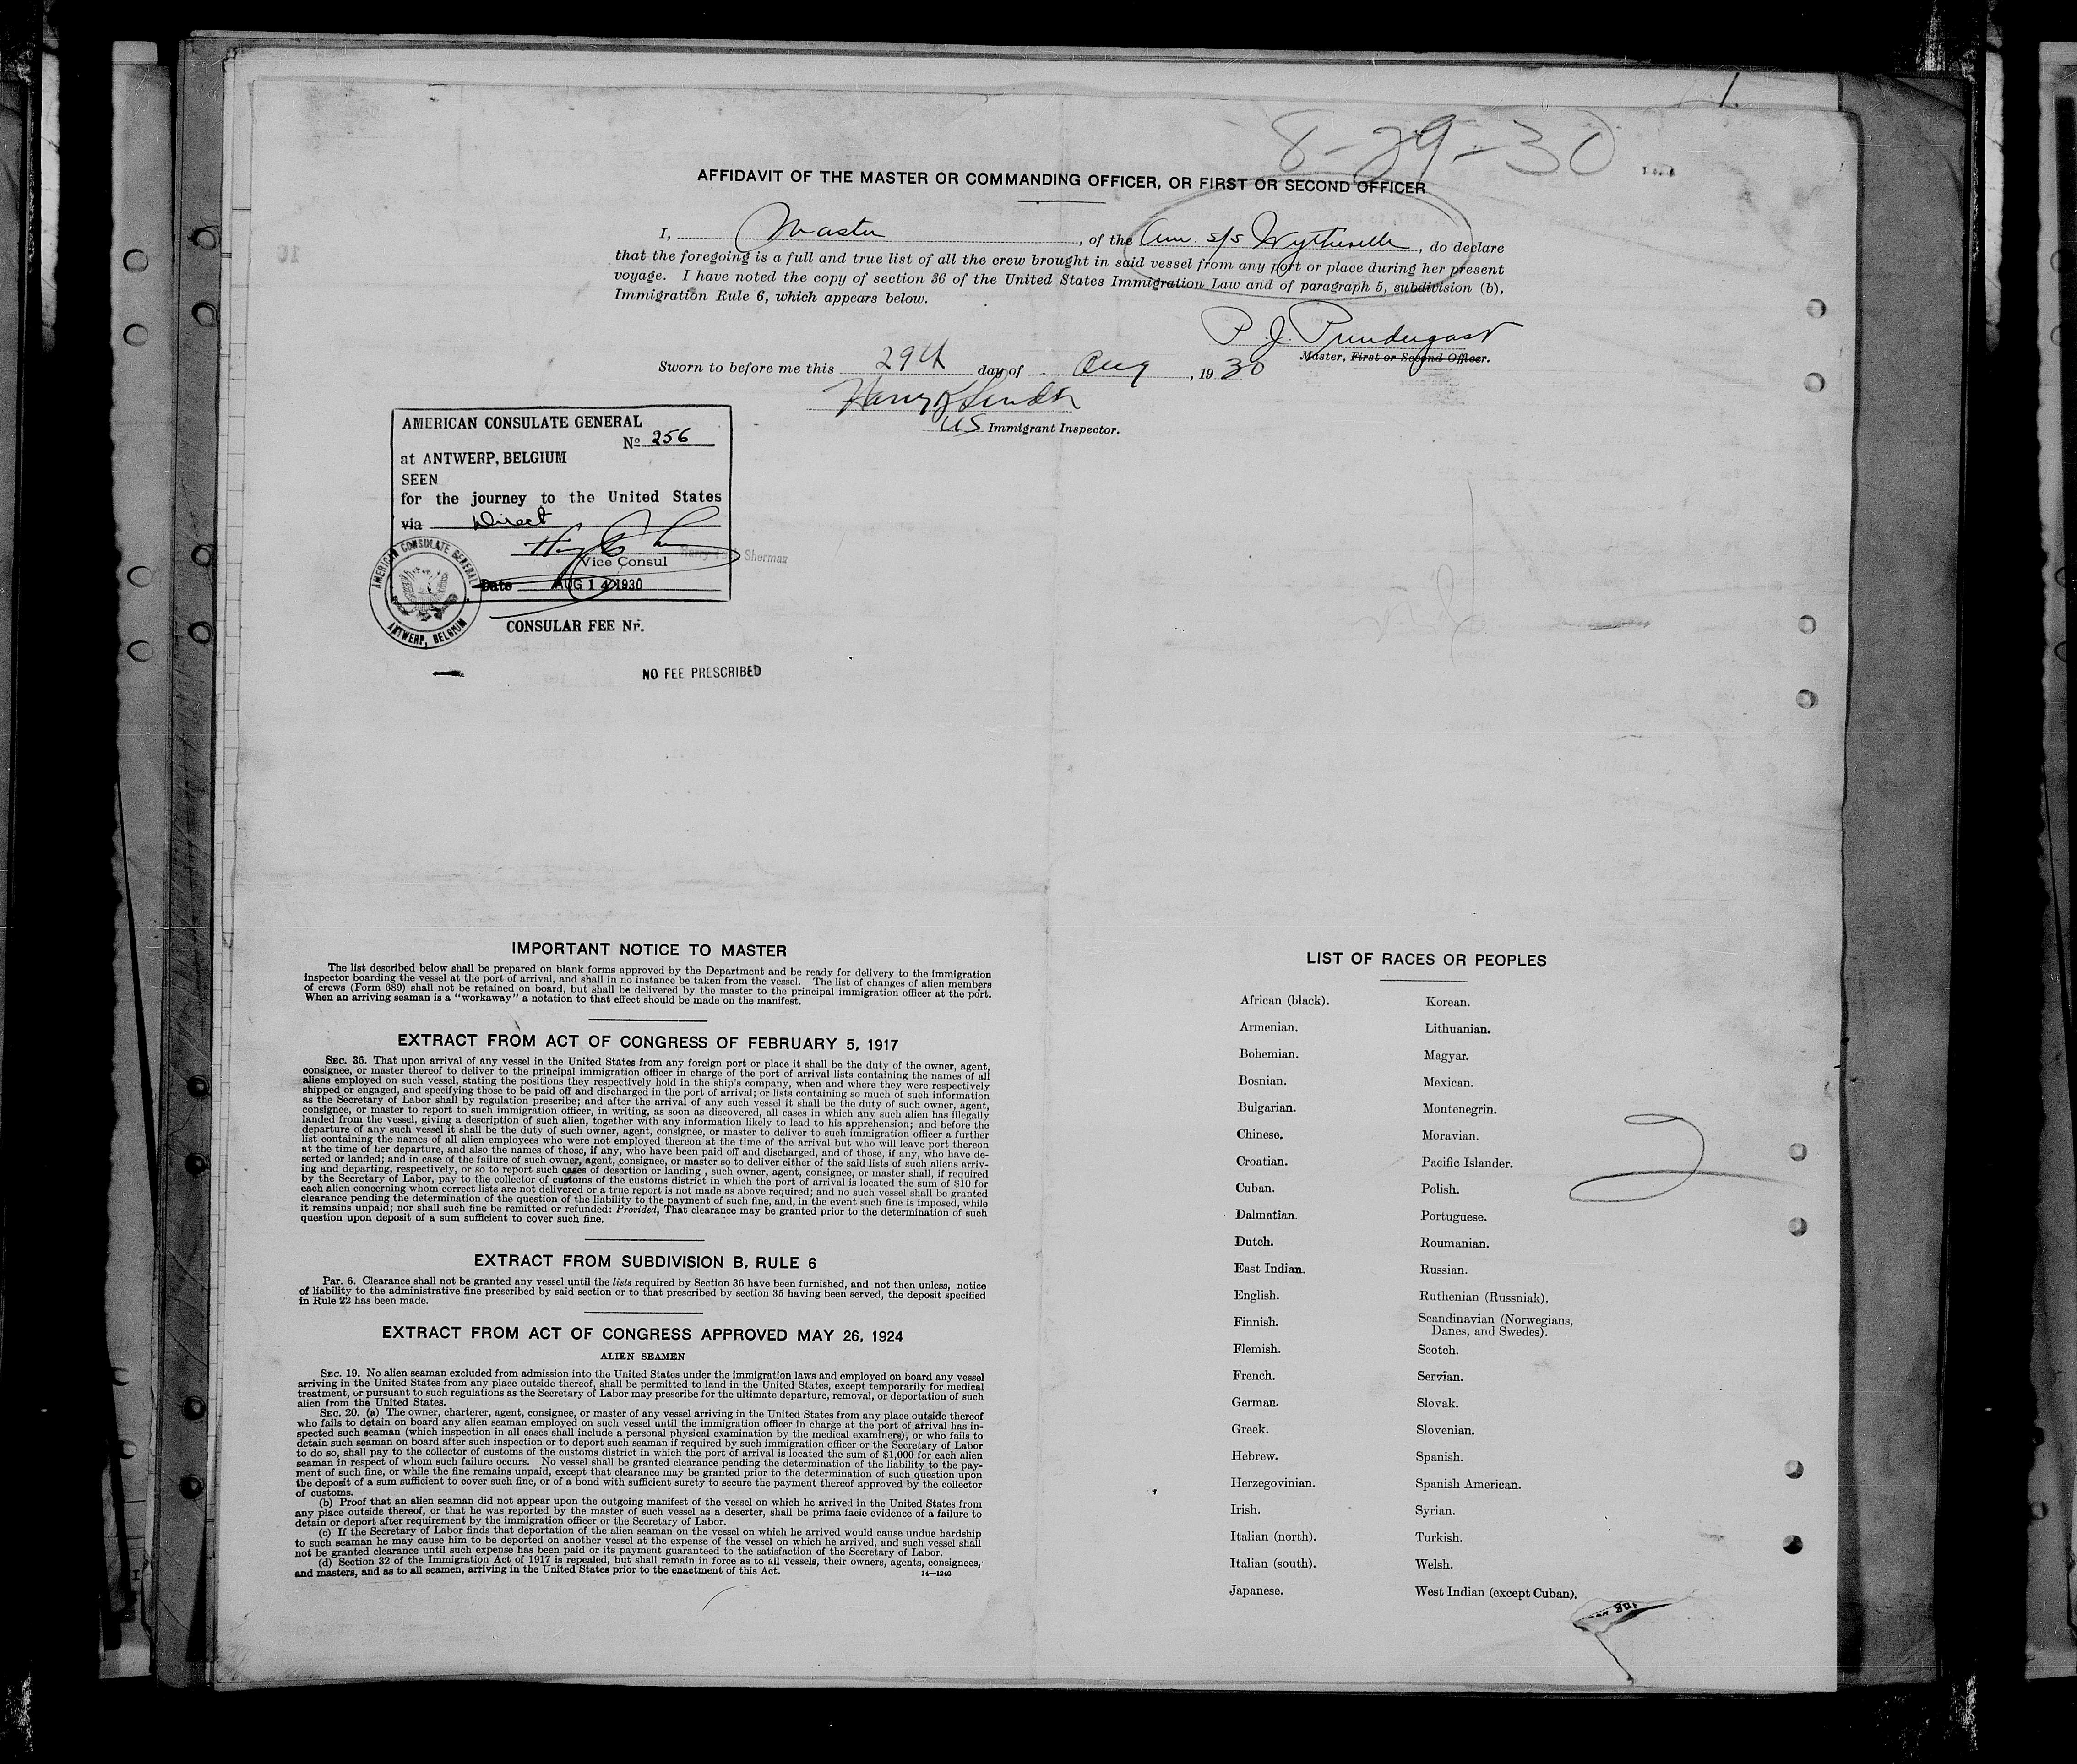 1.
8-29-30
AFFIDAVIT OF THE MASTER OR COMMANDING OFFICER, OR FIRST OR SECOND OFFICER
I, Master, of the Am. s/s Wytheville, do declare
that the foregoing is a full and true list of all the crew brought in said vessel from any port or place during her present
voyage. I have noted the copy of section 36 of the United States Immigration Law and of paragraph 5, subdivision (b),
Immigration Rule 6, which appears below.
P. J. Prendergast
Master, First or Second Officer.
Sworn to before me this 29th day of Aug, 1930
Harry
US Immigrant Inspector.
AMERICAN CONSULATE GENERAL
No 256
at ANTWERP, BELGIUM
SEEN
for the journey to the United States
via Direct
Harry Sherman
Vice Consul
Date AUG 14 1930
AMERICAN CONSULATE GENERAL
ANTWERP, BELGIUM
CONSULAR FEE Nr.
NO FEE PRESCRIBED
IMPORTANT NOTICE TO MASTER
The list described below shall be prepared on blank forms approved by the Department and be ready for delivery to the immigration
inspector boarding the vessel at the port of arrival, and shall in no instance be taken from the vessel. The list of changes of alien members
of crews (Form 689) shall not be retained on board, but shall be delivered by the master to the principal immigration officer at the port.
When an arriving seaman is a "workaway" a notation to that effect should be made on the manifest.
EXTRACT FROM ACT OF CONGRESS OF FEBRUARY 5, 1917
SEC. 36. That upon arrival of any vessel in the United States from any foreign port or place it shall be the duty of the owner, agent,
consignee, or master thereof to deliver to the principal immigration officer in charge of the port of arrival lists containing the names of all
aliens employed on such vessel, stating the positions they respectively hold in the ship's company, when and where they were respectively
shipped or engaged, and specifying those to be paid off and discharged in the port of arrival; or lists containing so much of such information
as the Secretary of Labor shall by regulation prescribe; and after the arrival of any such vessel it shall be the duty of such owner, agent,
consignee, or master to report to such immigration officer, in writing, as soon as discovered, all cases in which any such alien has illegally
landed from the vessel, giving a description of such alien, together with any information likely to lead to his apprehension; and before the
departure of any such vessel it shall be the duty of such owner, agent, consignee, or master to deliver to such immigration officer a further
list containing the names of all alien employees who were not employed thereon at the time of the arrival but who will leave port thereon
at the time of her departure, and also the names of those, if any, who have been paid off and discharged, and of those, if any, who have de-
serted or landed; and in case of the failure of such owner, agent, consignee, or master so to deliver either of the said lists of such aliens arriv-
ing and departing, respectively, or so to report such cases of desertion or landing, such owner, agent, consignee, or master, shall, if required
by the Secretary of Labor, pay to the collector of customs of the customs district in which the port of arrival is located the sum of $10 for
each alien concerning whom correct lists are not delivered or a true report is not made as above required; and no such vessel shall be granted
clearance pending the determination of the question of the liability to the payment of such fine, and, in the event such fine is imposed, while
it remains unpaid; nor shall such fine be remitted or refunded: Provided, That clearance may be granted prior to the determination of such
question upon deposit of a sum sufficient to cover such fine.
EXTRACT FROM SUBDIVISION B, RULE 6
Par. 6. Clearance shall not be granted any vessel until the lists required by Section 36 have been furnished, and not then unless, notice
of liability to the administrative fine prescribed by said section or to that prescribed by section 35 having been served, the deposit specified
in Rule 22 has been made.
EXTRACT FROM ACT OF CONGRESS APPROVED MAY 26, 1924
ALIEN SEAMEN
SEC. 19. No alien seaman excluded from admission into the United States under the immigration laws and employed on board any vessel
arriving in the United States from any place outside thereof, shall be permitted to land in the United States, except temporarily for medical
treatment, or pursuant to such regulations as the Secretary of Labor may prescribe for the ultimate departure, removal, or deportation of such
alien from the United States.
SEC. 20. (a) The owner, charterer, agent, consignee, or master of any vessel arriving in the United States from any place outside thereof
who fails to detain on board any alien seaman employed on such vessel until the immigration officer in charge at the port of arrival has in-
spected such seaman (which inspection in all cases shall include a personal physical examination by the medical examiners), or who fails to
detain such seaman on board after such inspection or to deport such seaman if required by such immigration officer or the Secretary of Labor
to do so, shall pay to the collector of customs of the customs district in which the port of arrival is located the sum of $1,000 for each alien
seaman in respect of whom such failure occurs. No vessel shall be granted clearance pending the determination of the liability to the pay-
ment of such fine, or while the fine remains unpaid, except that clearance may be granted prior to the determination of such question upon
the deposit of a sum sufficient to cover such fine, or of a bond with sufficient surety to secure the payment thereof approved by the collector
of customs.
(b) Proof that an alien seaman did not appear upon the outgoing manifest of the vessel on which he arrived in the United States from
any place outside thereof, or that he was reported by the master of such vessel as a deserter, shall be prima facie evidence of a failure to
detain or deport after requirement by the immigration officer or the Secretary of Labor.
(c) If the Secretary of Labor finds that deportation of the alien seaman on the vessel on which he arrived would cause undue hardship
to such seaman he may cause him to be deported on another vessel at the expense of the vessel on which he arrived, and such vessel shall
not be granted clearance until such expense has been paid or its payment guaranteed to the satisfaction of the Secretary of Labor.
(d) Section 32 of the Immigration Act of 1917 is repealed, but shall remain in force as to all vessels, their owners, agents, consignees,
and masters, and as to all seamen, arriving in the United States prior to the enactment of this Act.
14—1240
LIST OF RACES OR PEOPLES
African (black). Korean.
Armenian. Lithuanian.
Bohemian. Magyar.
Bosnian. Mexican.
Bulgarian. Montenegrin.
Chinese. Moravian.
Croatian. Pacific Islander.
Cuban. Polish.
Dalmatian. Portuguese.
Dutch. Roumanian.
East Indian. Russian.
English. Ruthenian (Russniak).
Finnish. Scandinavian (Norwegians,
Danes, and Swedes).
Flemish. Scotch.
French. Servian.
German. Slovak.
Greek. Slovenian.
Hebrew. Spanish.
Herzegovinian. Spanish American.
Irish. Syrian.
Italian (north). Turkish.
Italian (south). Welsh.
Japanese. West Indian (except Cuban).